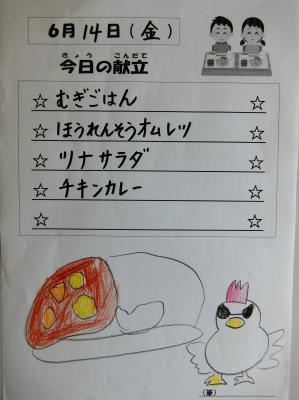 6月14日(金)
きょう こんだて
今日の献立
☆ むぎごはん ☆
☆ ほうれんそうオムレツ ☆
☆ ツナサラダ ☆
☆ チキンカレー ☆
☆ ☆
(筆)